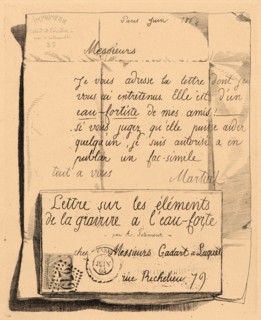 Paris Juin 1864
Messieurs
Je vous adresse la lettre dont je
vous ai entretenus. Elle est d'un
eau-fortiste de mes amis!
Si vous jugez qu'elle puisse aider
quelqu'un, je suis autorisé a en
publier un fac-simile
tout a vous
Martial
Lettre sur les éléments
de la gravure a l'eau-forte
par A.
chez Messieurs Cadart & Luquet
PARIS
JUIN
rue Richelieu, 79